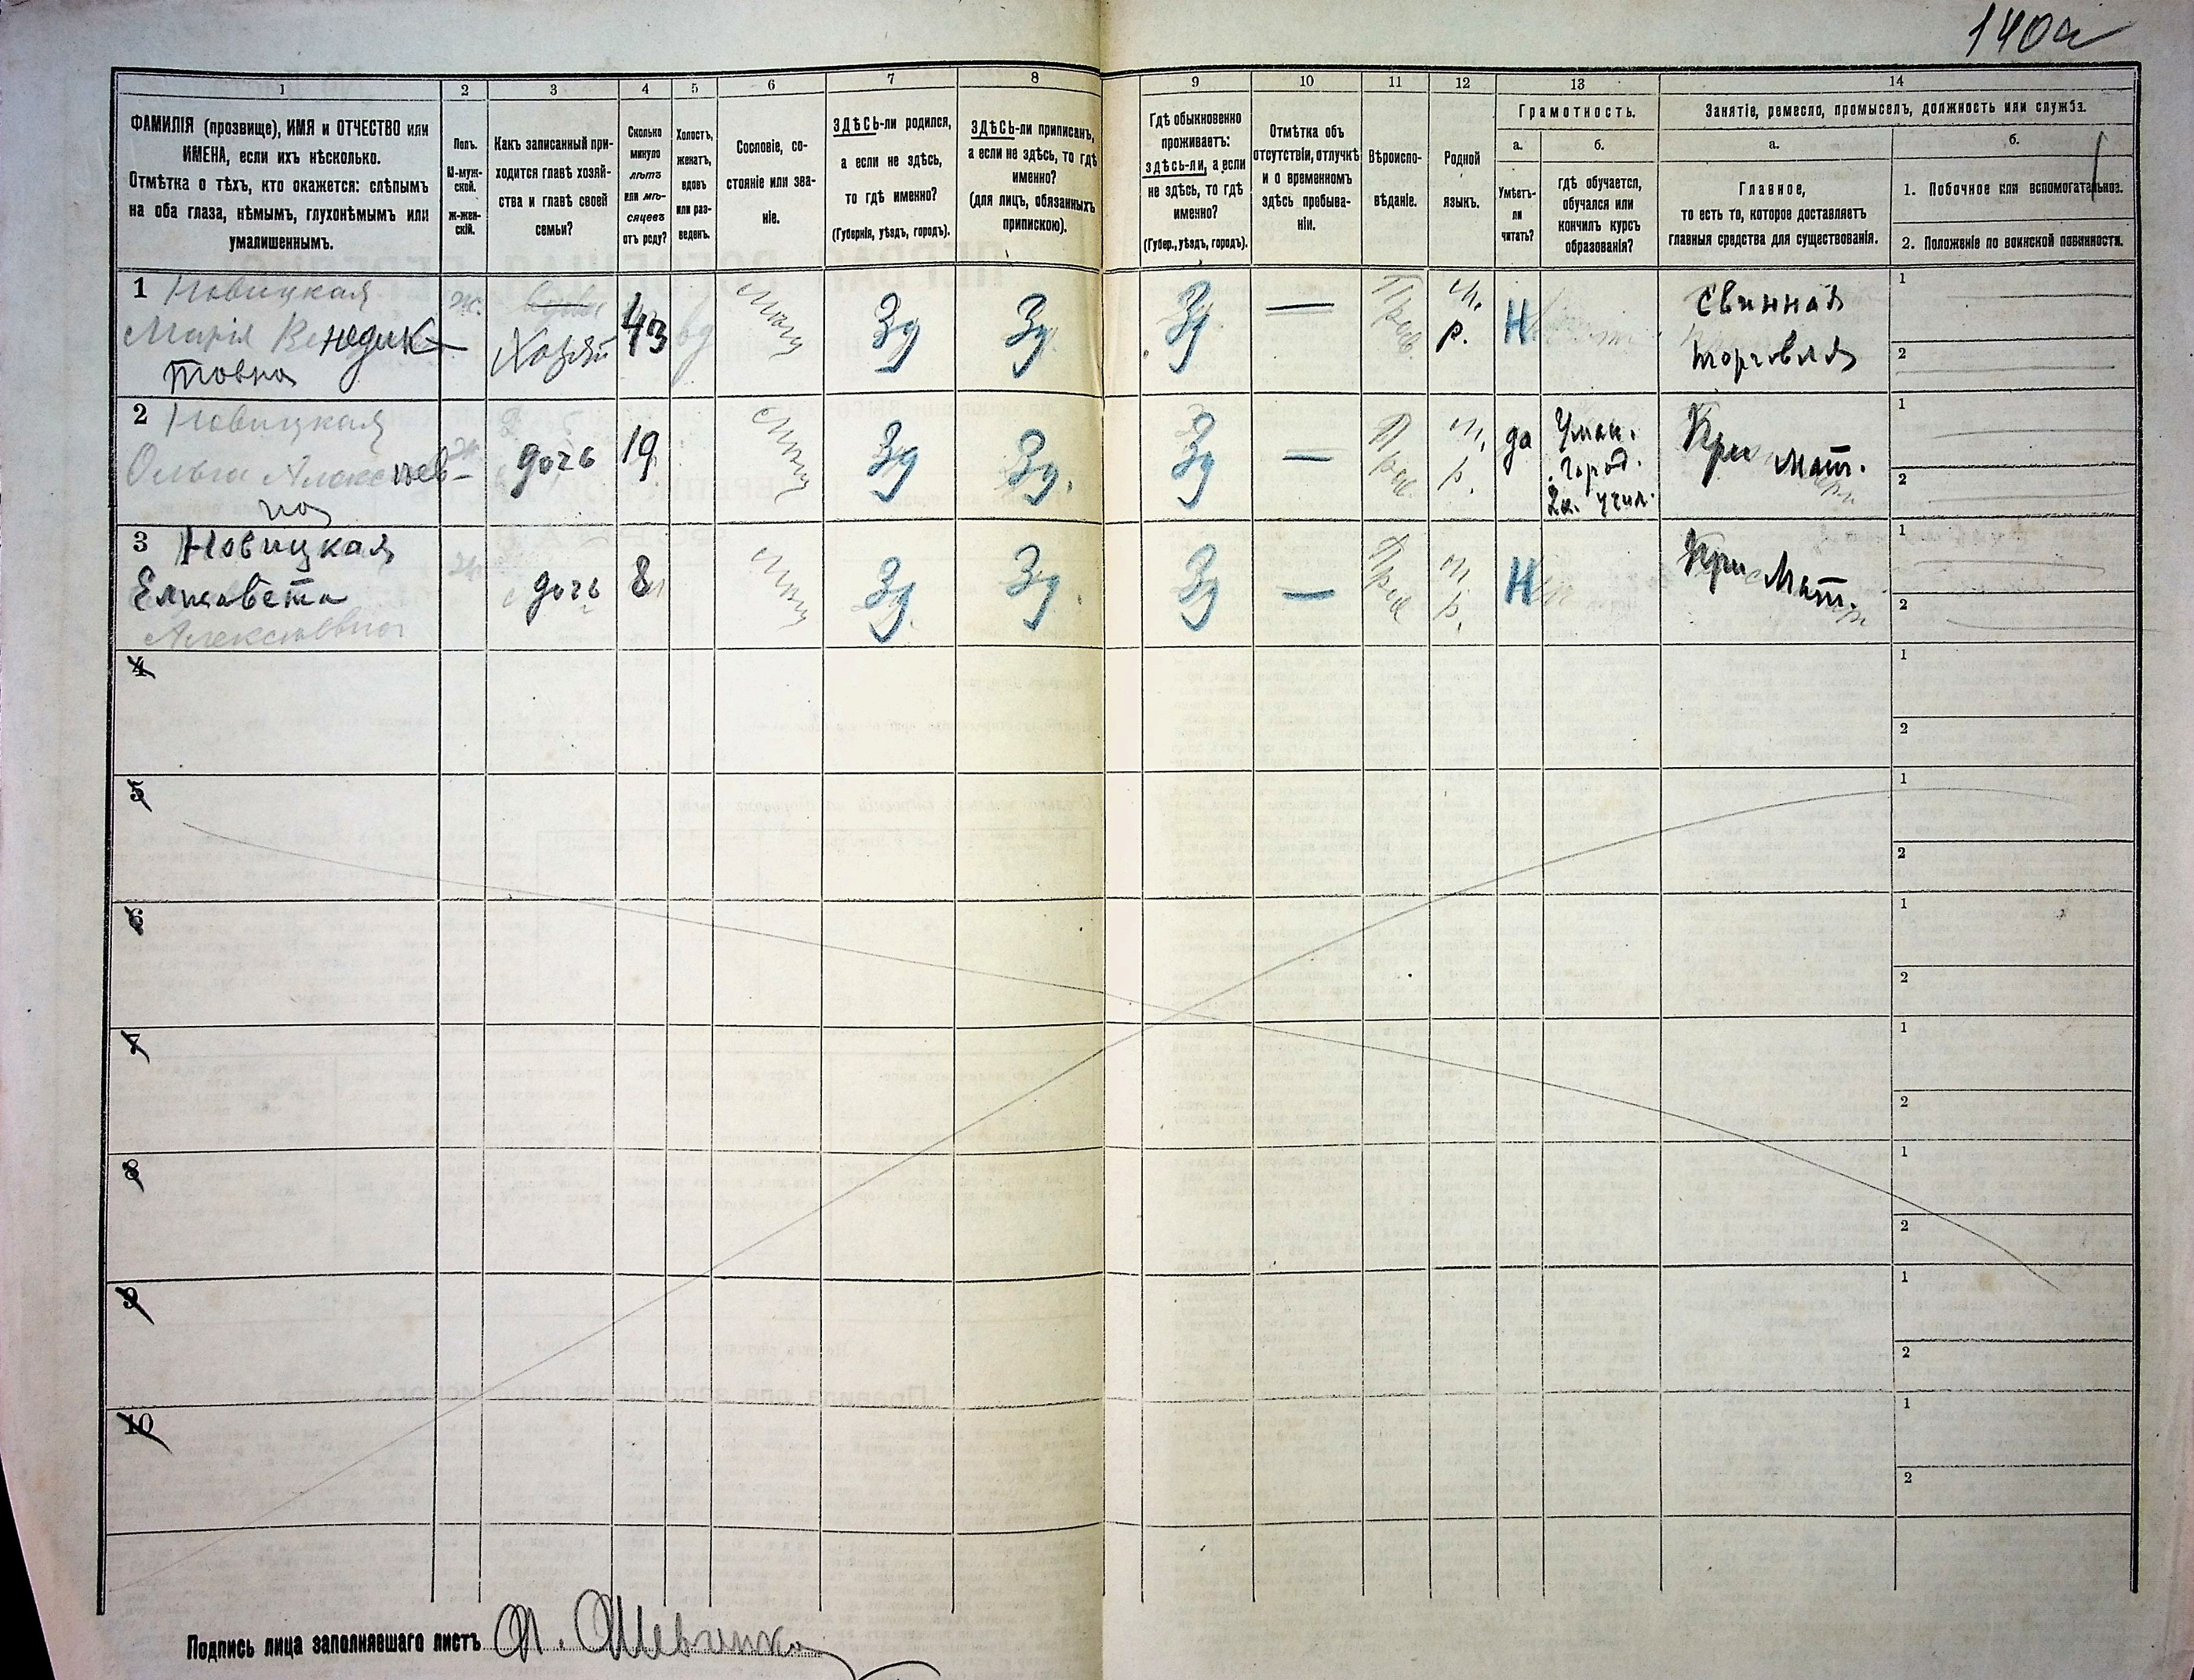 140а
1 2 3 4 5 6 7 8 9 10 11 12 13 14
ФАМИЛІЯ (прозвище), ИМЯ и ОТЧЕСТВО или
ИМЕНА, если ихъ нѣсколько.
Отмѣтка о тѣхъ, кто окажется: слѣпымъ
на оба глаза, нѣмымъ, глухонѣмымъ или
умалишеннымъ.
Полъ.
М-муж-
ской.
ж-жен-
скій.
Какъ записанный при-
ходится главѣ хозяй-
ства и главѣ своей
семьи?
Сколько
минуло
лѣтъ
или мѣ-
сяцевъ
отъ роду?
Холостъ,
женатъ,
вдовъ
или раз-
веденъ.
Сословіе, со-
стояніе или зва-
ніе.
ЗДѢСЬ-ли родился,
а если не здѣсь,
то гдѣ именно?
(Губернія, уѣздъ, городъ).
ЗДѢСЬ-ли приписанъ,
а если не здѣсь, то гдѣ
именно?
(для лицъ, обязанныхъ
припискою).
Гдѣ обыкновенно
проживаетъ:
здѣсь-ли, а если
не здѣсь, то гдѣ
именно?
(Губер., уѣздъ, городъ).
Отмѣтка объ
отсутствіи, отлучкѣ
и о временномъ
здѣсь пребыва-
ніи.
Вѣроиспо-
вѣданіе.
Родной
языкъ.
Грамотность.
а.
Умѣетъ-
ли
читать?
б.
гдѣ обучается,
обучался или
кончилъ курсъ
образованія?
Занятіе, ремесло, промыселъ, должность или служба.
а.
Главное,
то есть то, которое доставляетъ
главныя средства для существованія.
б.
1. Побочное или вспомогательное.
2. Положеніе по воинской повинности.
1 Новицкая
Марія Венедик-
товна
ж.
вдова
Хозяй
43
вд
Мѣщ
Зд
Зд
Зд
—
Прав.
м.
р.
Н
Свинная
торговля
1
2
2 Новицкая
Ольга Алексѣев-
на
ж
дочь
19
Мѣщ
Зд
Зд.
Зд
—
Прав.
м.
р.
да
Уман.
город.
2х. учил.
При мат.
1
2
3 Новицкая
Елисавета
Алексѣевна
ж
дочь
8
Мѣщ
Зд.
Зд.
Зд
—
Прав
м
р.
Н
При Мат.
1
2
4
1
2
5
1
2
6
1
2
7
1
2
8
1
2
9
1
2
10
1
2
Подпись лица заполнявшаго листъ